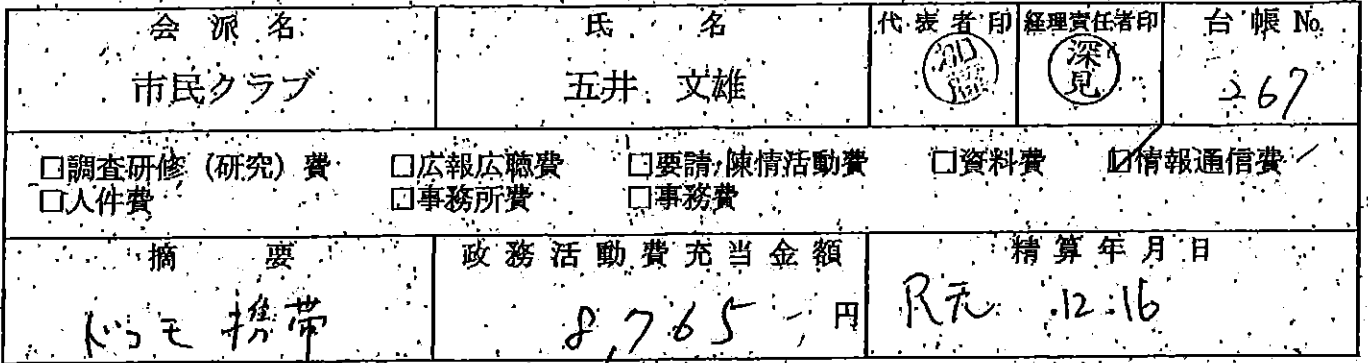 会派名 氏名 代表者印 経理責任者印 台帳No.
市民クラブ 五井 文雄 深見 267
□調査研修（研究）費 □広報広聴費 □要請・陳情活動費 □資料費 ☑情報通信費
□人件費 □事務所費 □事務費
摘要 政務活動費充当金額 精算年月日
ドコモ携帯 8,765 円 R元.12.16